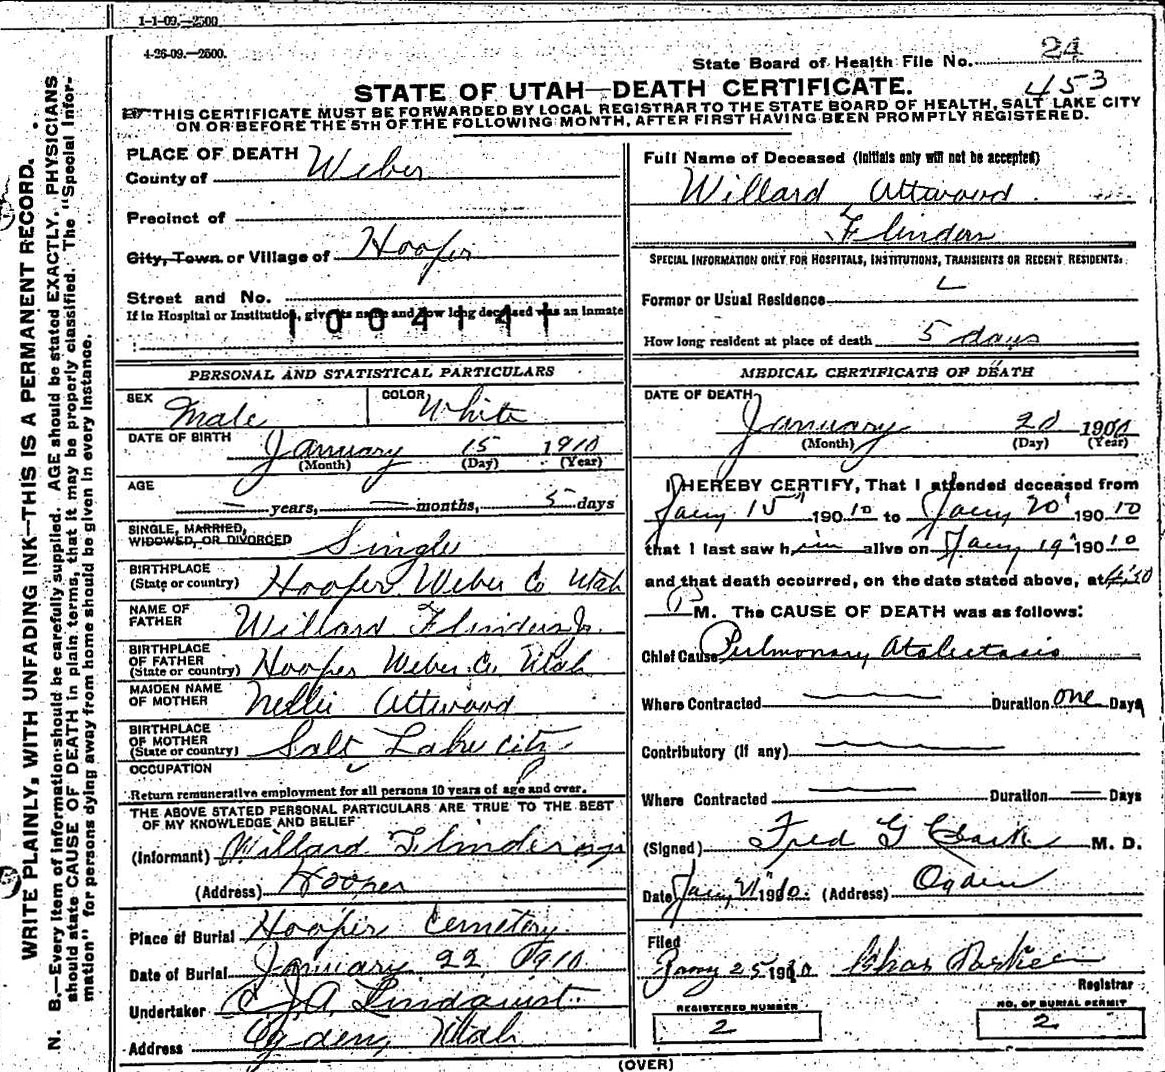 1-1-09.—2500
4-26-09.—2500.
State Board of Health File No. 24
453
STATE OF UTAH—DEATH CERTIFICATE.
THIS CERTIFICATE MUST BE FORWARDED BY LOCAL REGISTRAR TO THE STATE BOARD OF HEALTH, SALT LAKE CITY
ON OR BEFORE THE 5TH OF THE FOLLOWING MONTH, AFTER FIRST HAVING BEEN PROMPTLY REGISTERED.
WRITE PLAINLY, WITH UNFADING INK—THIS IS A PERMANENT RECORD.
N. B.—Every item of information should be carefully supplied. AGE should be stated EXACTLY. PHYSICIANS
should state CAUSE OF DEATH in plain terms, that it may be properly classified. The "Special Infor-
mation" for persons dying away from home should be given in every instance.
PLACE OF DEATH
County of Weber
Precinct of
City, Town or Village of Hooper
Street and No.
If in Hospital or Institution, give its name and how long deceased was an inmate
1004141
PERSONAL AND STATISTICAL PARTICULARS
SEX Male COLOR White
DATE OF BIRTH January 15 1910
(Month) (Day) (Year)
AGE
— years, — months, 5 days
SINGLE, MARRIED,
WIDOWED, OR DIVORCED Single
BIRTHPLACE
(State or country) Hooper Weber Co Utah
NAME OF
FATHER Willard Flinders Jr.
BIRTHPLACE
OF FATHER
(State or country) Hooper Weber Co. Utah
MAIDEN NAME
OF MOTHER Nellie Attwood
BIRTHPLACE
OF MOTHER
(State or country) Salt Lake City
OCCUPATION
Return remunerative employment for all persons 10 years of age and over.
THE ABOVE STATED PERSONAL PARTICULARS ARE TRUE TO THE BEST
OF MY KNOWLEDGE AND BELIEF
(Informant) Willard Flinders
(Address) Hooper
Place of Burial Hooper Cemetery
Date of Burial January 22 1910
Undertaker C. J. A. Lindquist.
Address Ogden, Utah
Full Name of Deceased (Initials only will not be accepted)
Willard Attwood
Flinders
SPECIAL INFORMATION ONLY FOR HOSPITALS, INSTITUTIONS, TRANSIENTS OR RECENT RESIDENTS:
Former or Usual Residence
How long resident at place of death 5 days
MEDICAL CERTIFICATE OF DEATH
DATE OF DEATH
January 20 1910
(Month) (Day) (Year)
I HEREBY CERTIFY, That I attended deceased from
Jany 15" 190 10 to Jany 20" 190 10
that I last saw him alive on Jany 19" 190 10
and that death occurred, on the date stated above, at
P M. The CAUSE OF DEATH was as follows:
Chief Cause Pulmonary Atalectasis
Where Contracted Duration one Days
Contributory (if any)
Where Contracted Duration — Days
(Signed) Fred G Clark M. D.
Date Jany 21" 1910. (Address) Ogden
Filed
Jany 25 1910 Chas Parker
Registrar
REGISTERED NUMBER
2
NO. OF BURIAL PERMIT
2
(OVER)